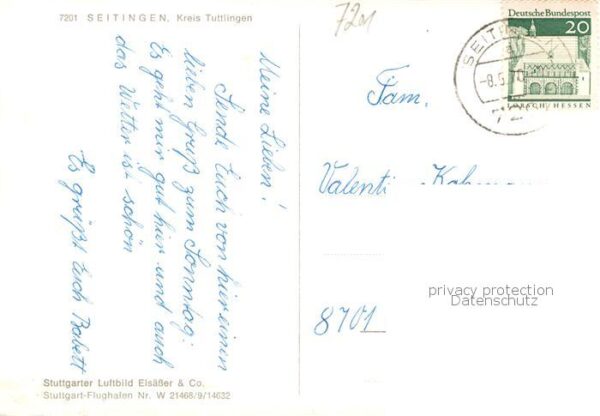 7201 SEITINGEN, Kreis Tuttlingen
Meine Lieben!
Sende Euch von hier einen
lieben Gruß zum Sonntag.
Es geht mir gut hier und auch
das Wetter ist schön
Es grüßt Euch Babett
Stuttgarter Luftbild Elsäßer & Co.
Stuttgart-Flughafen Nr. W 21468/9/14632
7201
SEIT
-8.6.70
72
Deutsche Bundespost
20
LORSCH/HESSEN
Fam.
Valenti
8701
privacy protection
Datenschutz